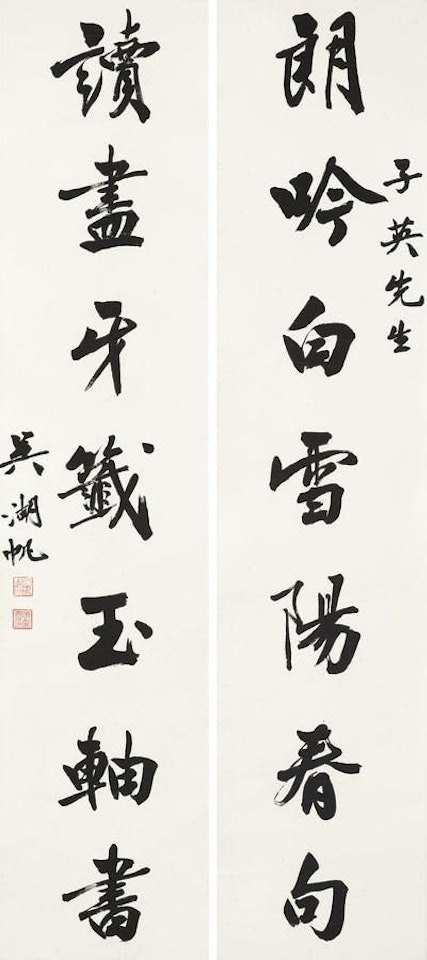 朗吟白雪陽春句
子英先生
讀盡牙籤玉軸書
吳湖帆